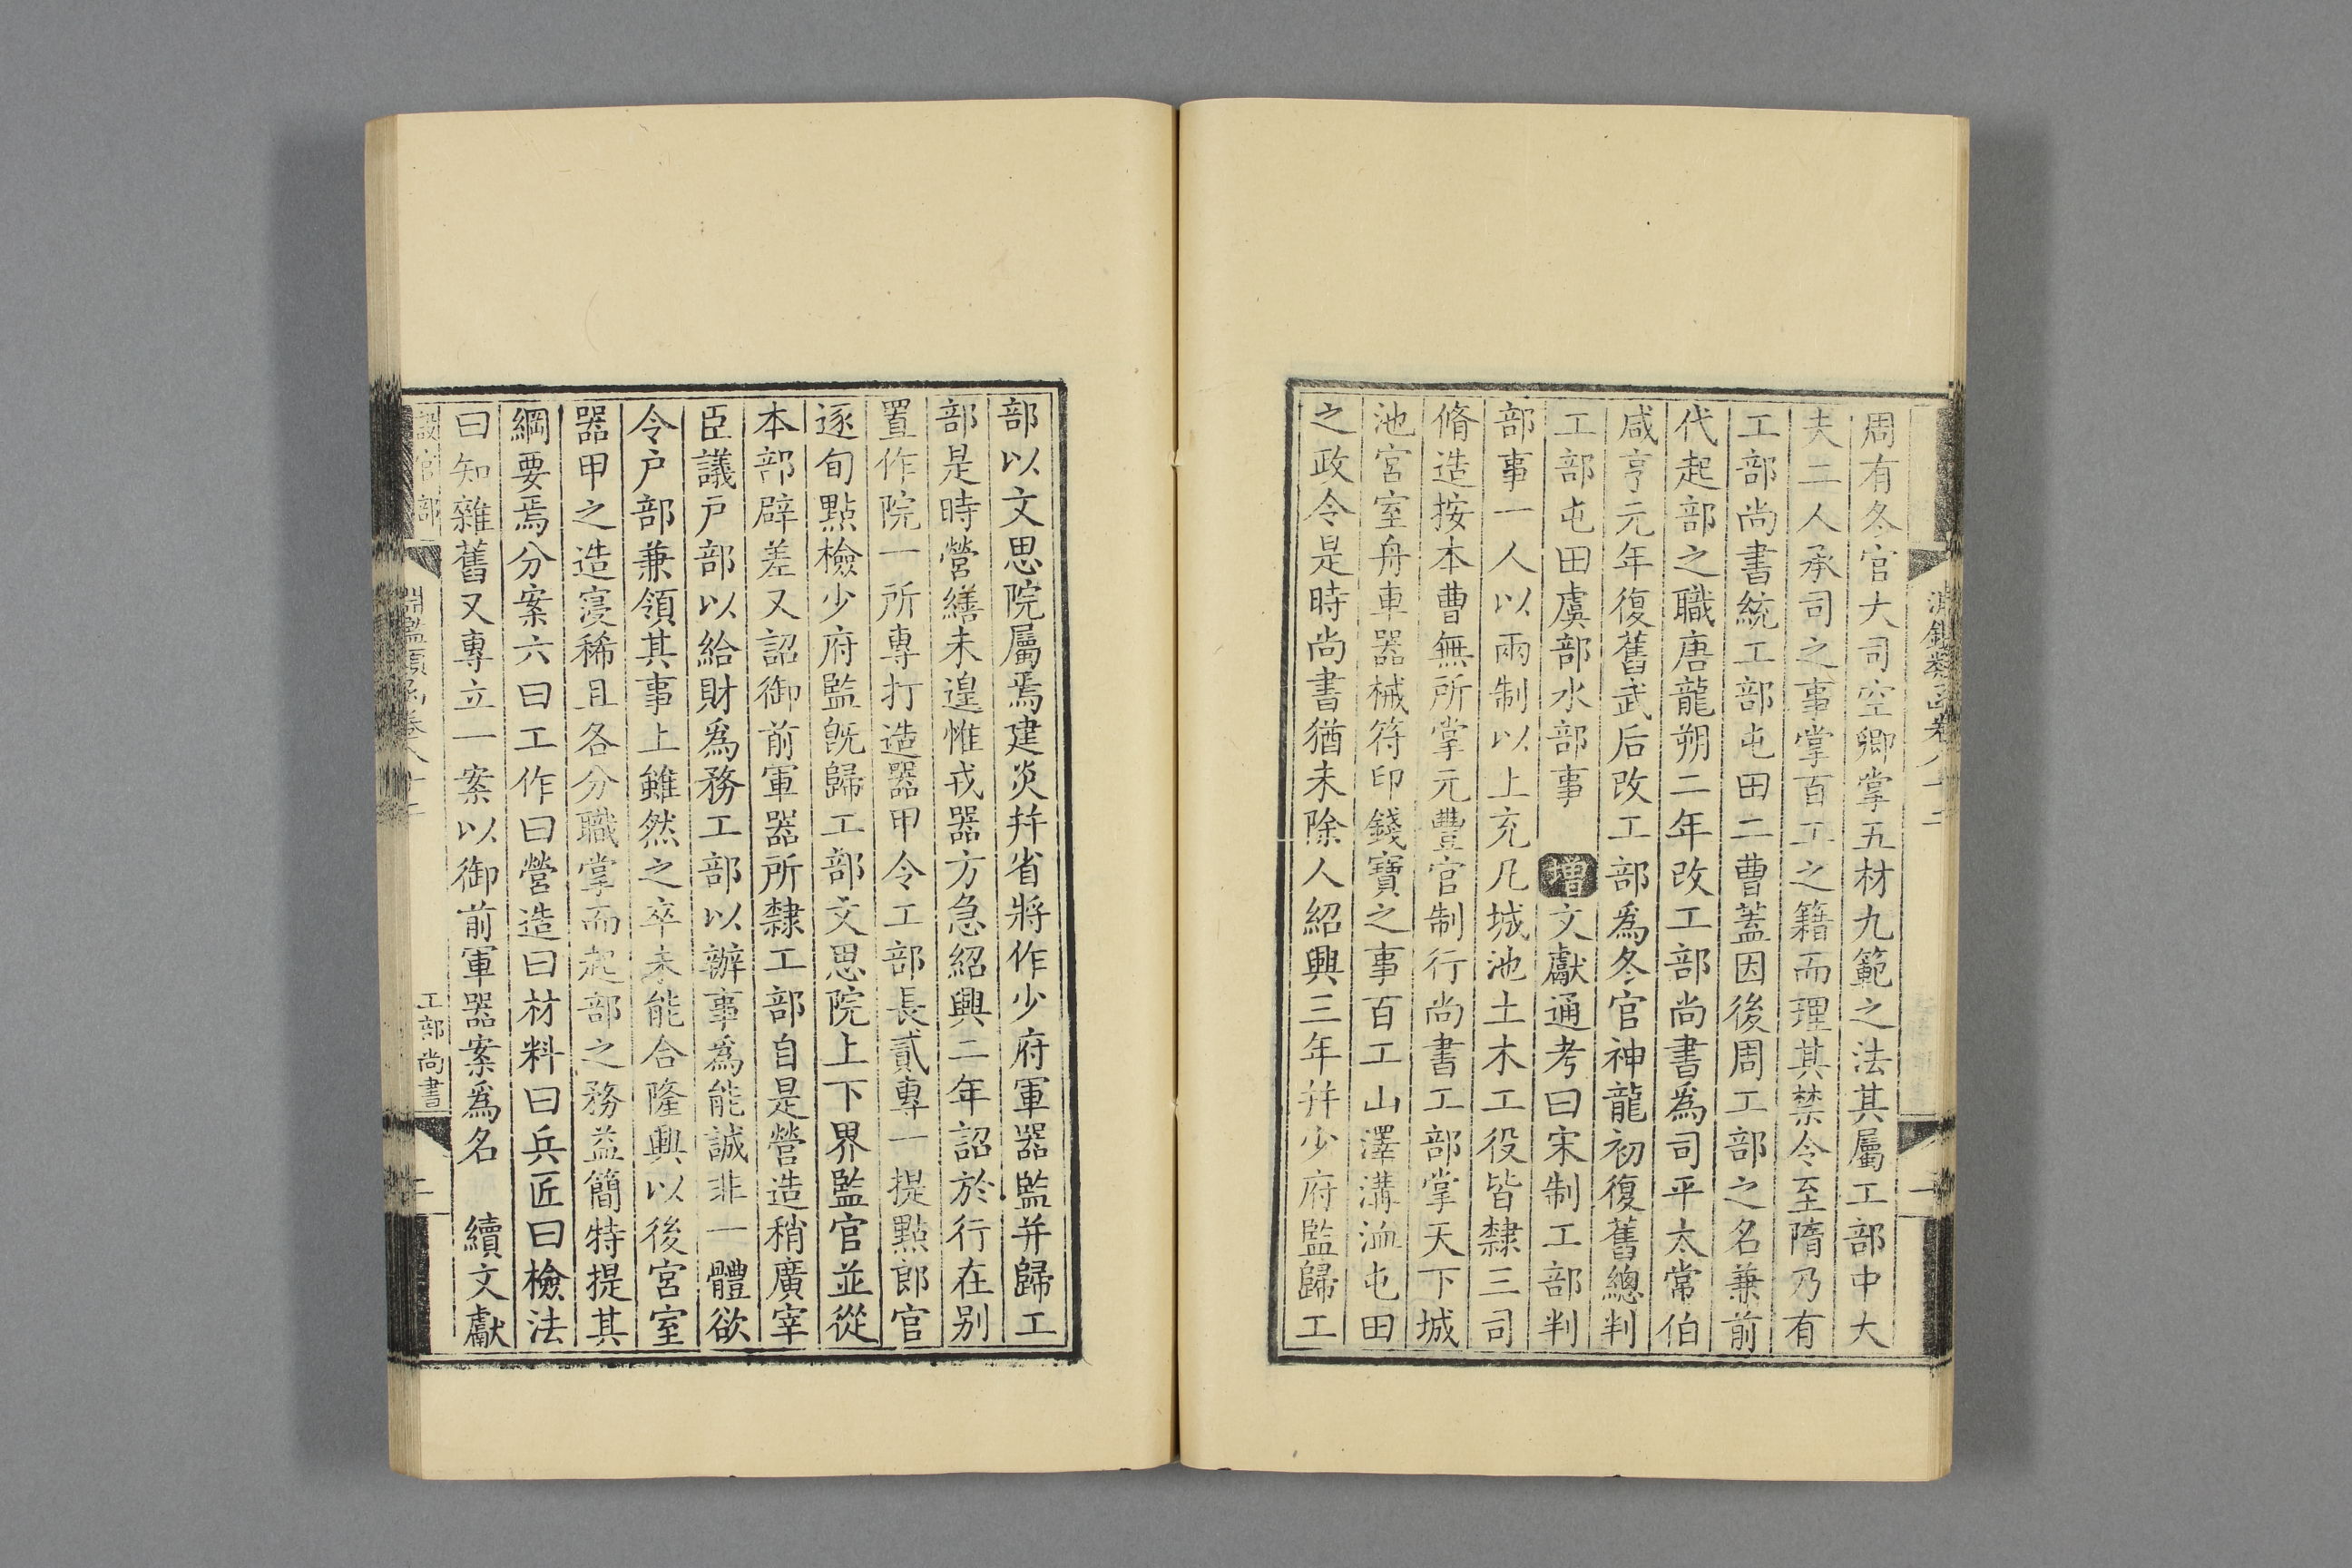 周有冬官大司空卿掌五材九範之法其屬工部中大
夫二人承司之事掌百工之籍而理其禁令至隋乃有
工部尚書統工部屯田二曹蓋因後周工部之名兼前
代起部之職唐龍朔二年改工部尚書爲司平太常伯
咸亨元年復舊武后改工部爲冬官神龍初復舊總判
工部屯田虞部水部事 增文獻通考曰宋制工部判
部事一人以兩制以上充凡城池土木工役皆隸三司
脩造按本曹無所掌元豐官制行尚書工部掌天下城
池宮室舟車器械符印錢寶之事百工山澤溝洫屯田
之政令是時尚書猶未除人紹興三年幷少府監歸工
部以文思院屬焉建炎幷省將作少府軍器監并歸工
部是時營繕未遑惟戎器方急紹興二年詔於行在别
置作院一所專打造器甲令工部長貳專一提點郎官
逐旬點檢少府監旣歸工部文思院上下界監官並從
本部辟差又詔御前軍器所隸工部自是營造稍廣宰
臣議戸部以給財爲務工部以辦事爲能誠非一體欲
令户部兼領其事上雖然之卒未能合隆興以後宮室
器甲之造寖稀且各分職掌而起部之務益簡特提其
綱要焉分案六曰工作曰營造曰材料曰兵匠曰檢法
曰知雜舊又專立一案以御前軍器案爲名 續文獻
設官部
淵鑑類函卷八十二
工部尚書
二